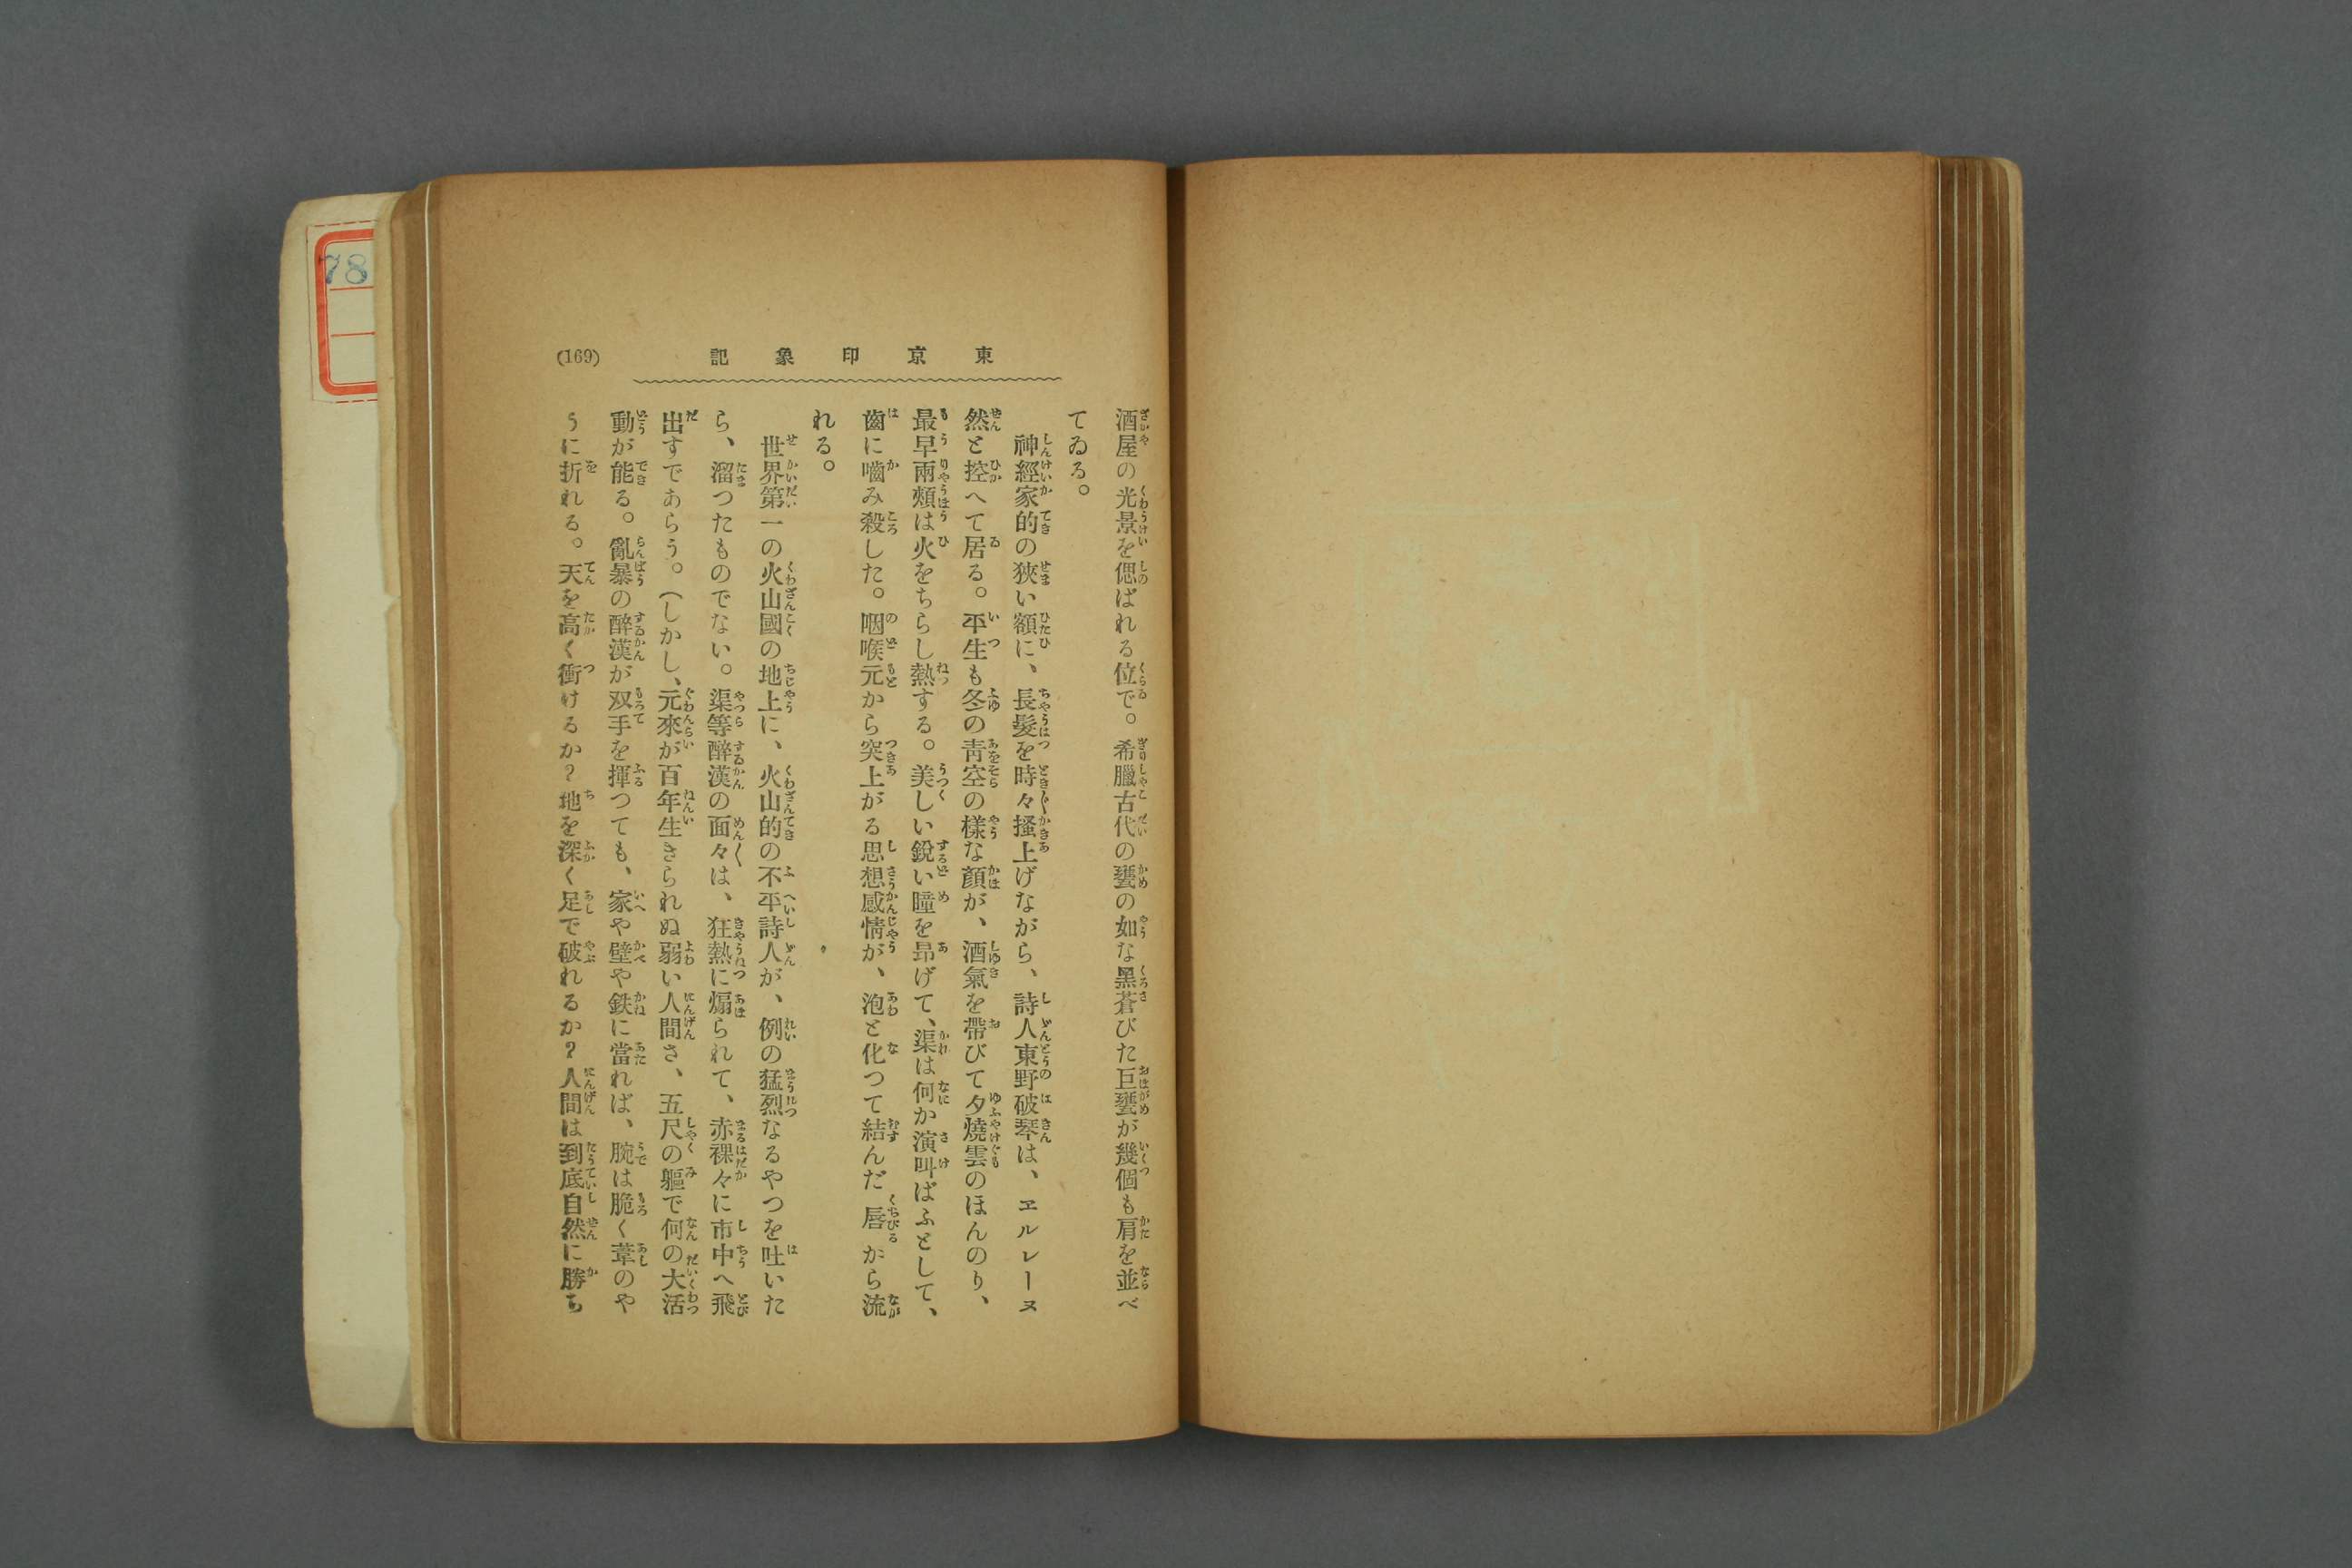 東京印象記
(169)
酒屋の光景を偲ばれる位で。希臘古代の甕の如な黑蒼びた巨甕が幾個も肩を並べ
てゐる。
神經家的の狹い額に、長髮を時々搔上げながら、詩人東野破琴は、ヱルレーヌ
然と控へて居る。平生も冬の靑空の樣な顏が、酒氣を帶びて夕燒雲のほんのり、
最早兩頰は火をちらし熱する。美しい銳い瞳を昻げて、渠は何か演叫ばふとして、
齒に嚙み殺した。咽喉元から突上がる思想感情が、泡と化つて結んだ唇から流
れる。
世界第一の火山國の地上に、火山的の不平詩人が、例の猛烈なるやつを吐いた
ら、溜つたものでない。渠等醉漢の面々は、狂熱に煽られて、赤裸々に市中へ飛
出すであらう。(しかし、元來が百年生きられぬ弱い人間さ、五尺の軀で何の大活
動が能る。亂暴の醉漢が双手を揮つても、家や壁や鉄に當れば、腕は脆く葦のや
うに折れる。天を高く衝けるか?地を深く足で破れるか?人間は到底自然に勝ち
78